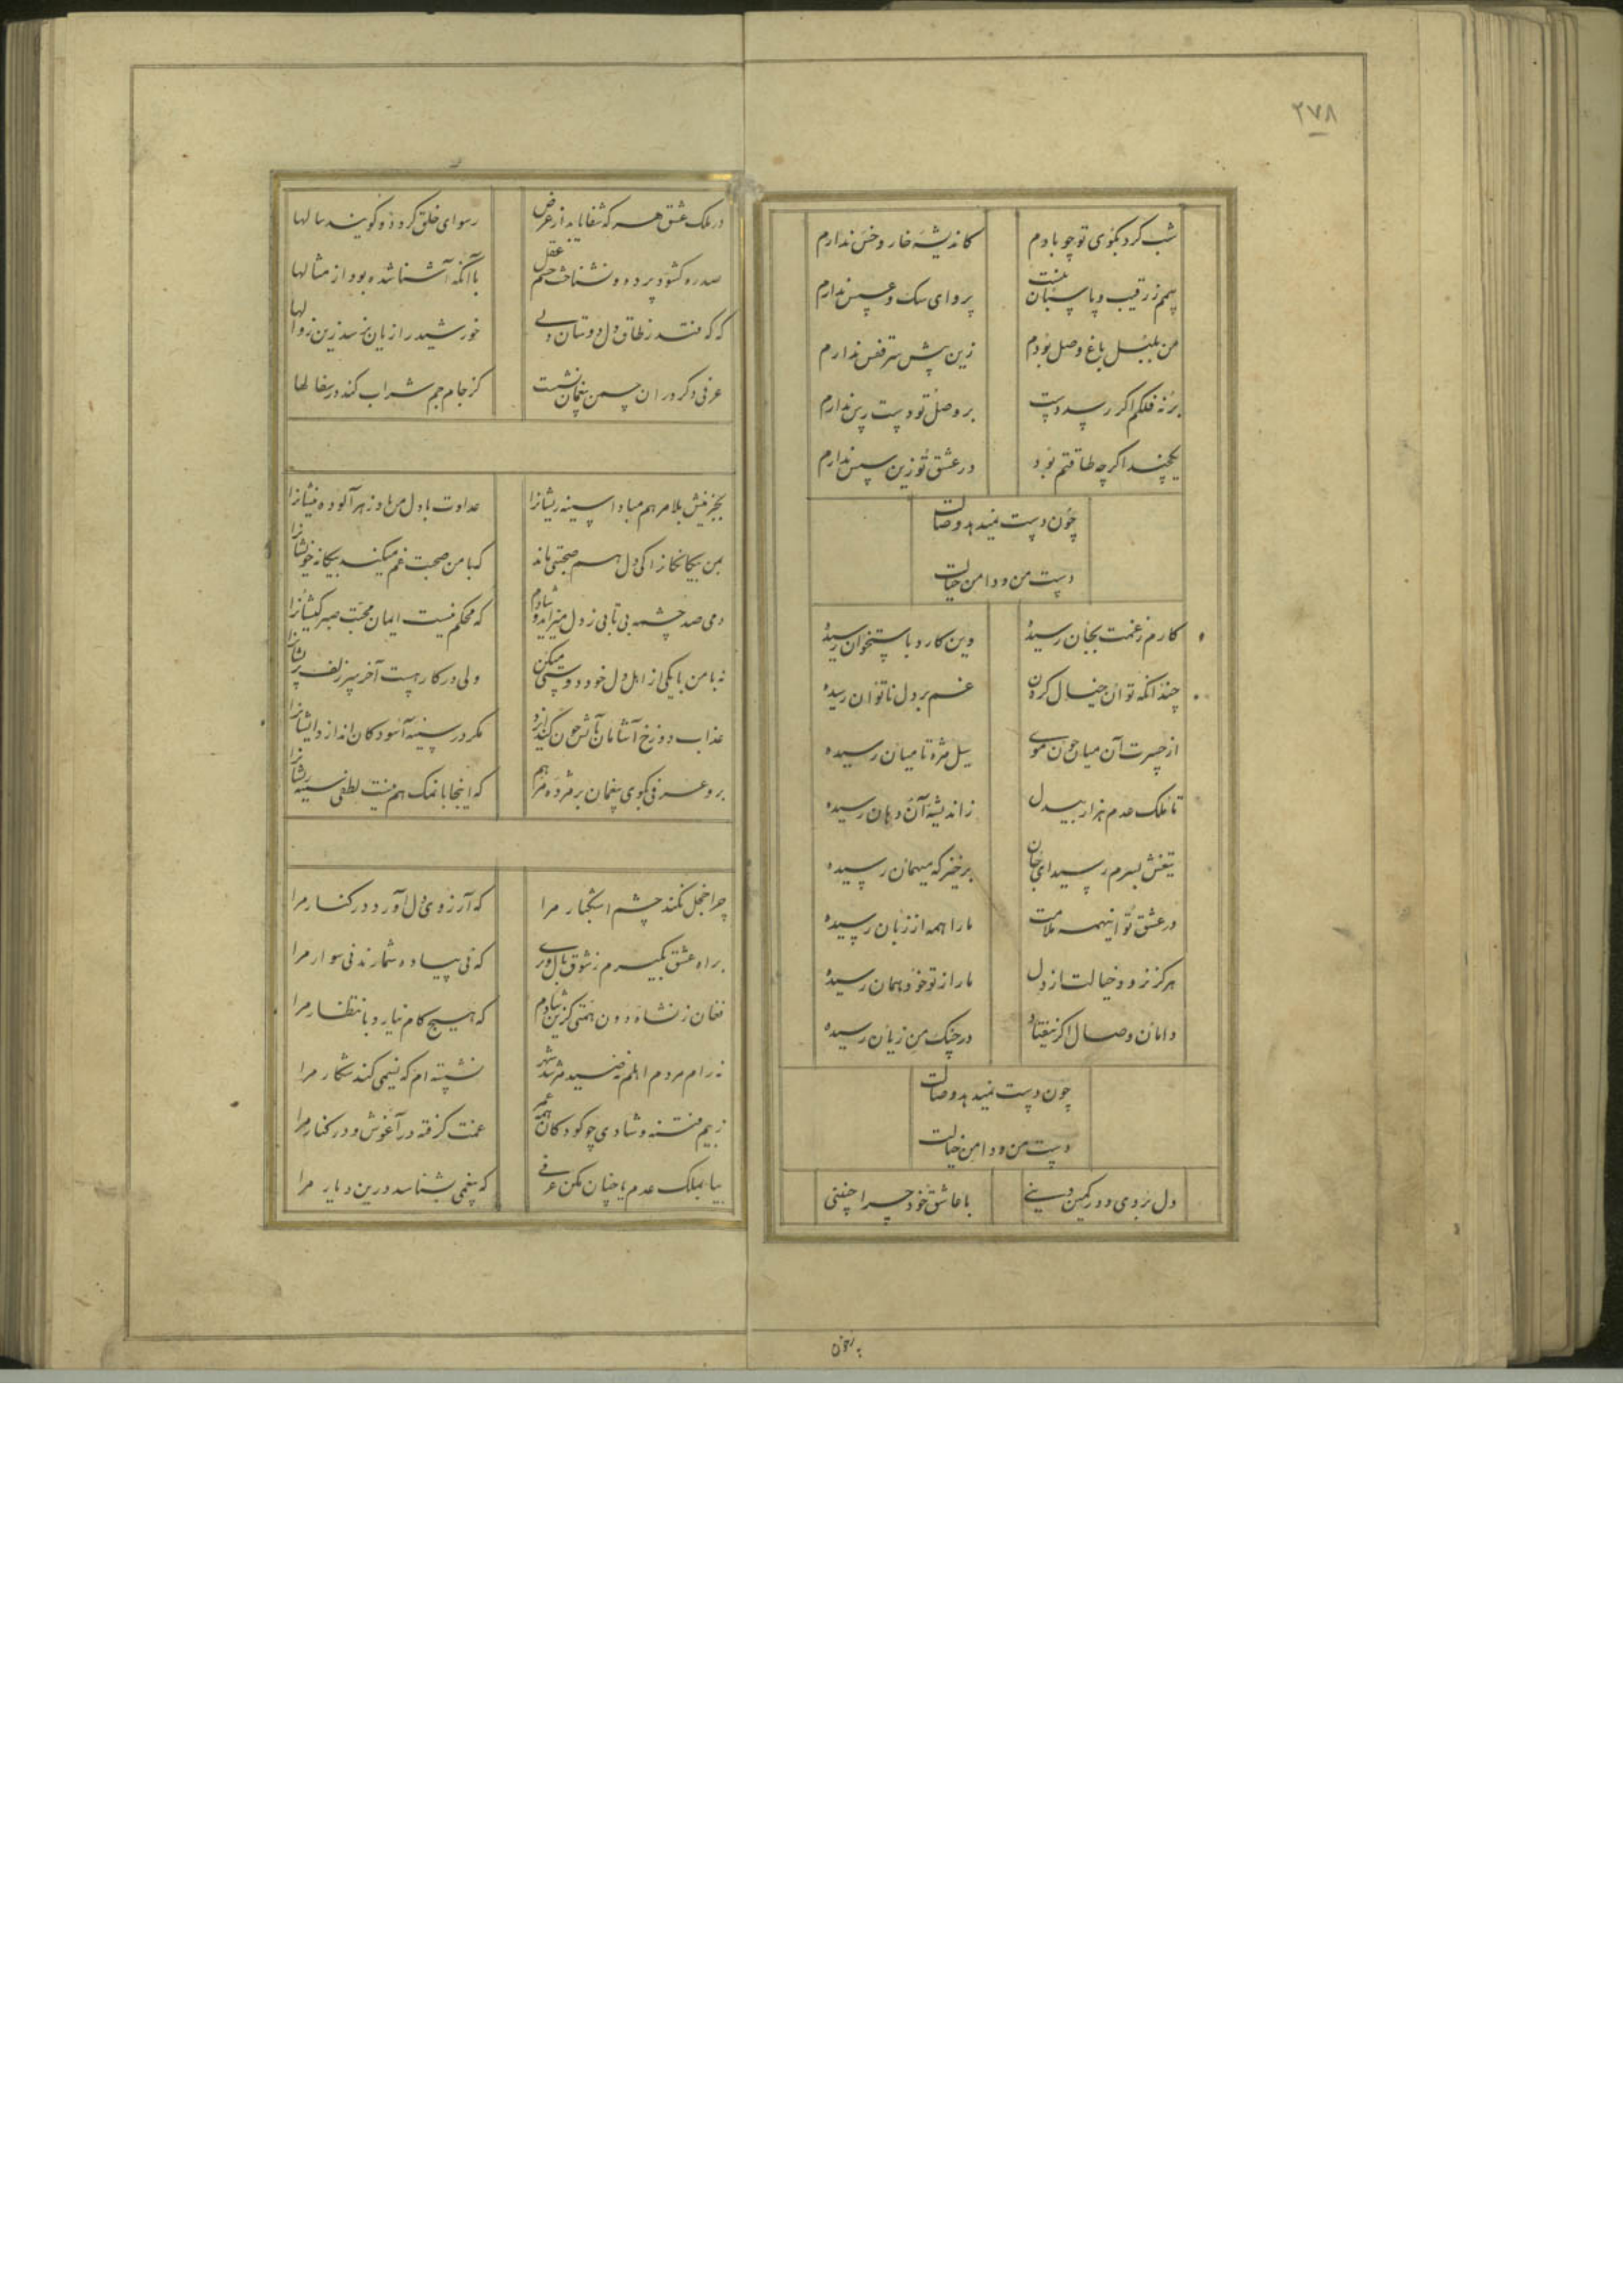 ۲۷۸
شب کرد بکوی تو چو بادم
کاندیشهٔ خار و خس ندارم
بیم ز رقیب و پاسبان نیست
پروای سک و عسس ندارم
من بلبل باغ وصل بودم
زین پیش سر قفس ندارم
بر نه فلکم اکر رسد دست
بر وصل تو دست رس ندارم
یکچند اکرچه طاقتم بود
در عشق تو زین سپس ندارم
چون دست نمیدهد وصالت
دست من و دامن خیالت
کارم ز غمت بجان رسیده
وین کارد باستخوان رسیده
چندانکه توان خیال کردن
غم بر دل ناتوان رسیده
از حسرت آن میان چون موی
سیل مژه تا میان رسیده
تا ملک عدم هزار بیدل
ز اندیشهٔ آن دهان رسیده
تیغش بسرم رسید ای جان
برخیز که میهمان رسیده
در عشق تو اینهمه ملامت
ما را همه از زبان رسیده
هرکز نرود خیالت از دل
ما را ز تو خود همان رسیده
دامان وصال اکر نیفتاد
در چنک من زیان رسیده
چون دست نمیدهد وصالت
دست من و دامن خیالت
دل بردی و در کمین دینی
با عاشق خود چرا چنینی
در ملک عشق هر که شفا یابد از مرض
رسوای خلق کردد و کویند سالها
صد ره کشود پرده و نشناخت چشم عقل
با آنکه آشنا شده بود از مثالها
که که فتد ز طاق دل دوستان ولی
خورشید را زیان نرسد زین زوالها
عرفی دکر در ان چمن بیغمان نشست
کز جام جم شراب کند در سفالها
بجز نیش بلا مرهم مبادا سینه ریشانرا
عداوت با دل من باد زهرآلوده نیشانرا
بمن بیکانکانرا کی دل هم صحبتی ماند
که با من صحبت غم میکند بیکانه خویشانرا
دمی صد چشمه بی تابی ز دل میزاید و شادم
که محکم نیست ایمان محبت صبر کیشانرا
نه با من با یکی از اهل دل خود دوستی میکن
ولی در کار هست آخر سر زلف پریشانرا
عذاب دوزخ آشامان بآتش چون کند ایزد
مکر در سینه آسودکان اندازد ایشانرا
برو عرفی بکوی بیغمان بر مژده مرهم
که اینجا با نمک هم نیست لطفی سینه ریشانرا
چرا خجل نکند چشم اشکبار مرا
که آرزوی دل آورد در کنار مرا
براه عشق بکیرم ز شوق بال و پری
که نی پیاده شمارند نی سوار مرا
فغان ز نشاه دون همتی کزین شادم
که هیچ کام نیارد بانتظار مرا
نه رام مردم اهلم نه صید مرشد شهر
نشسته ام که نیمی کند شکار مرا
ز بیم فتنه و شادی چو کودکان همه عمر
غمت کرفته در آغوش و در کنار مرا
بیا بملک عدم یا چنان مکن عرفی
که بیغمی بشناسد درین دیار مرا